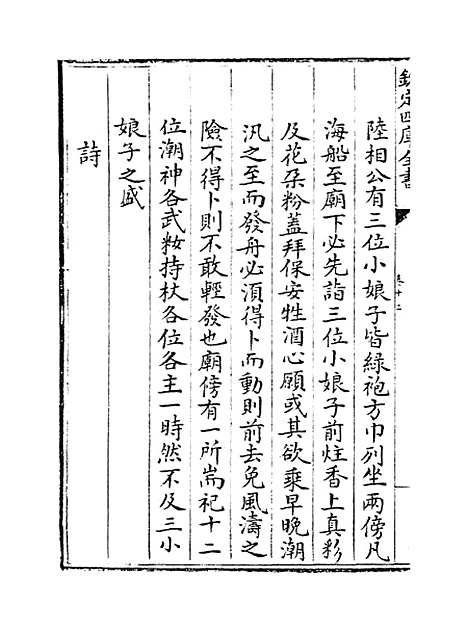 欽定四庫全書
卷十二
陸相公有三位小娘子皆綠袍方巾列坐兩傍凡
海船至廟下必先詣三位小娘子前炷香上真彩
及花朶粉盖拜保安牲酒心願或其欲乘早晚潮
汛之至而發舟必湏得卜而動則前去免風濤之
險不得卜則不敢輕發也廟傍有一所耑祀十二
位潮神各武妝持杖各位各主一時然不及三小
娘子之盛
詩